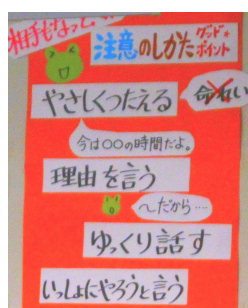 相手もなって
注意のしかた グッド☆ポイント
やさしくつたえる
命れい
今は○○の時間だよ。
理由を言う
～だから…
ゆっくり話す
いっしょにやろうと言う